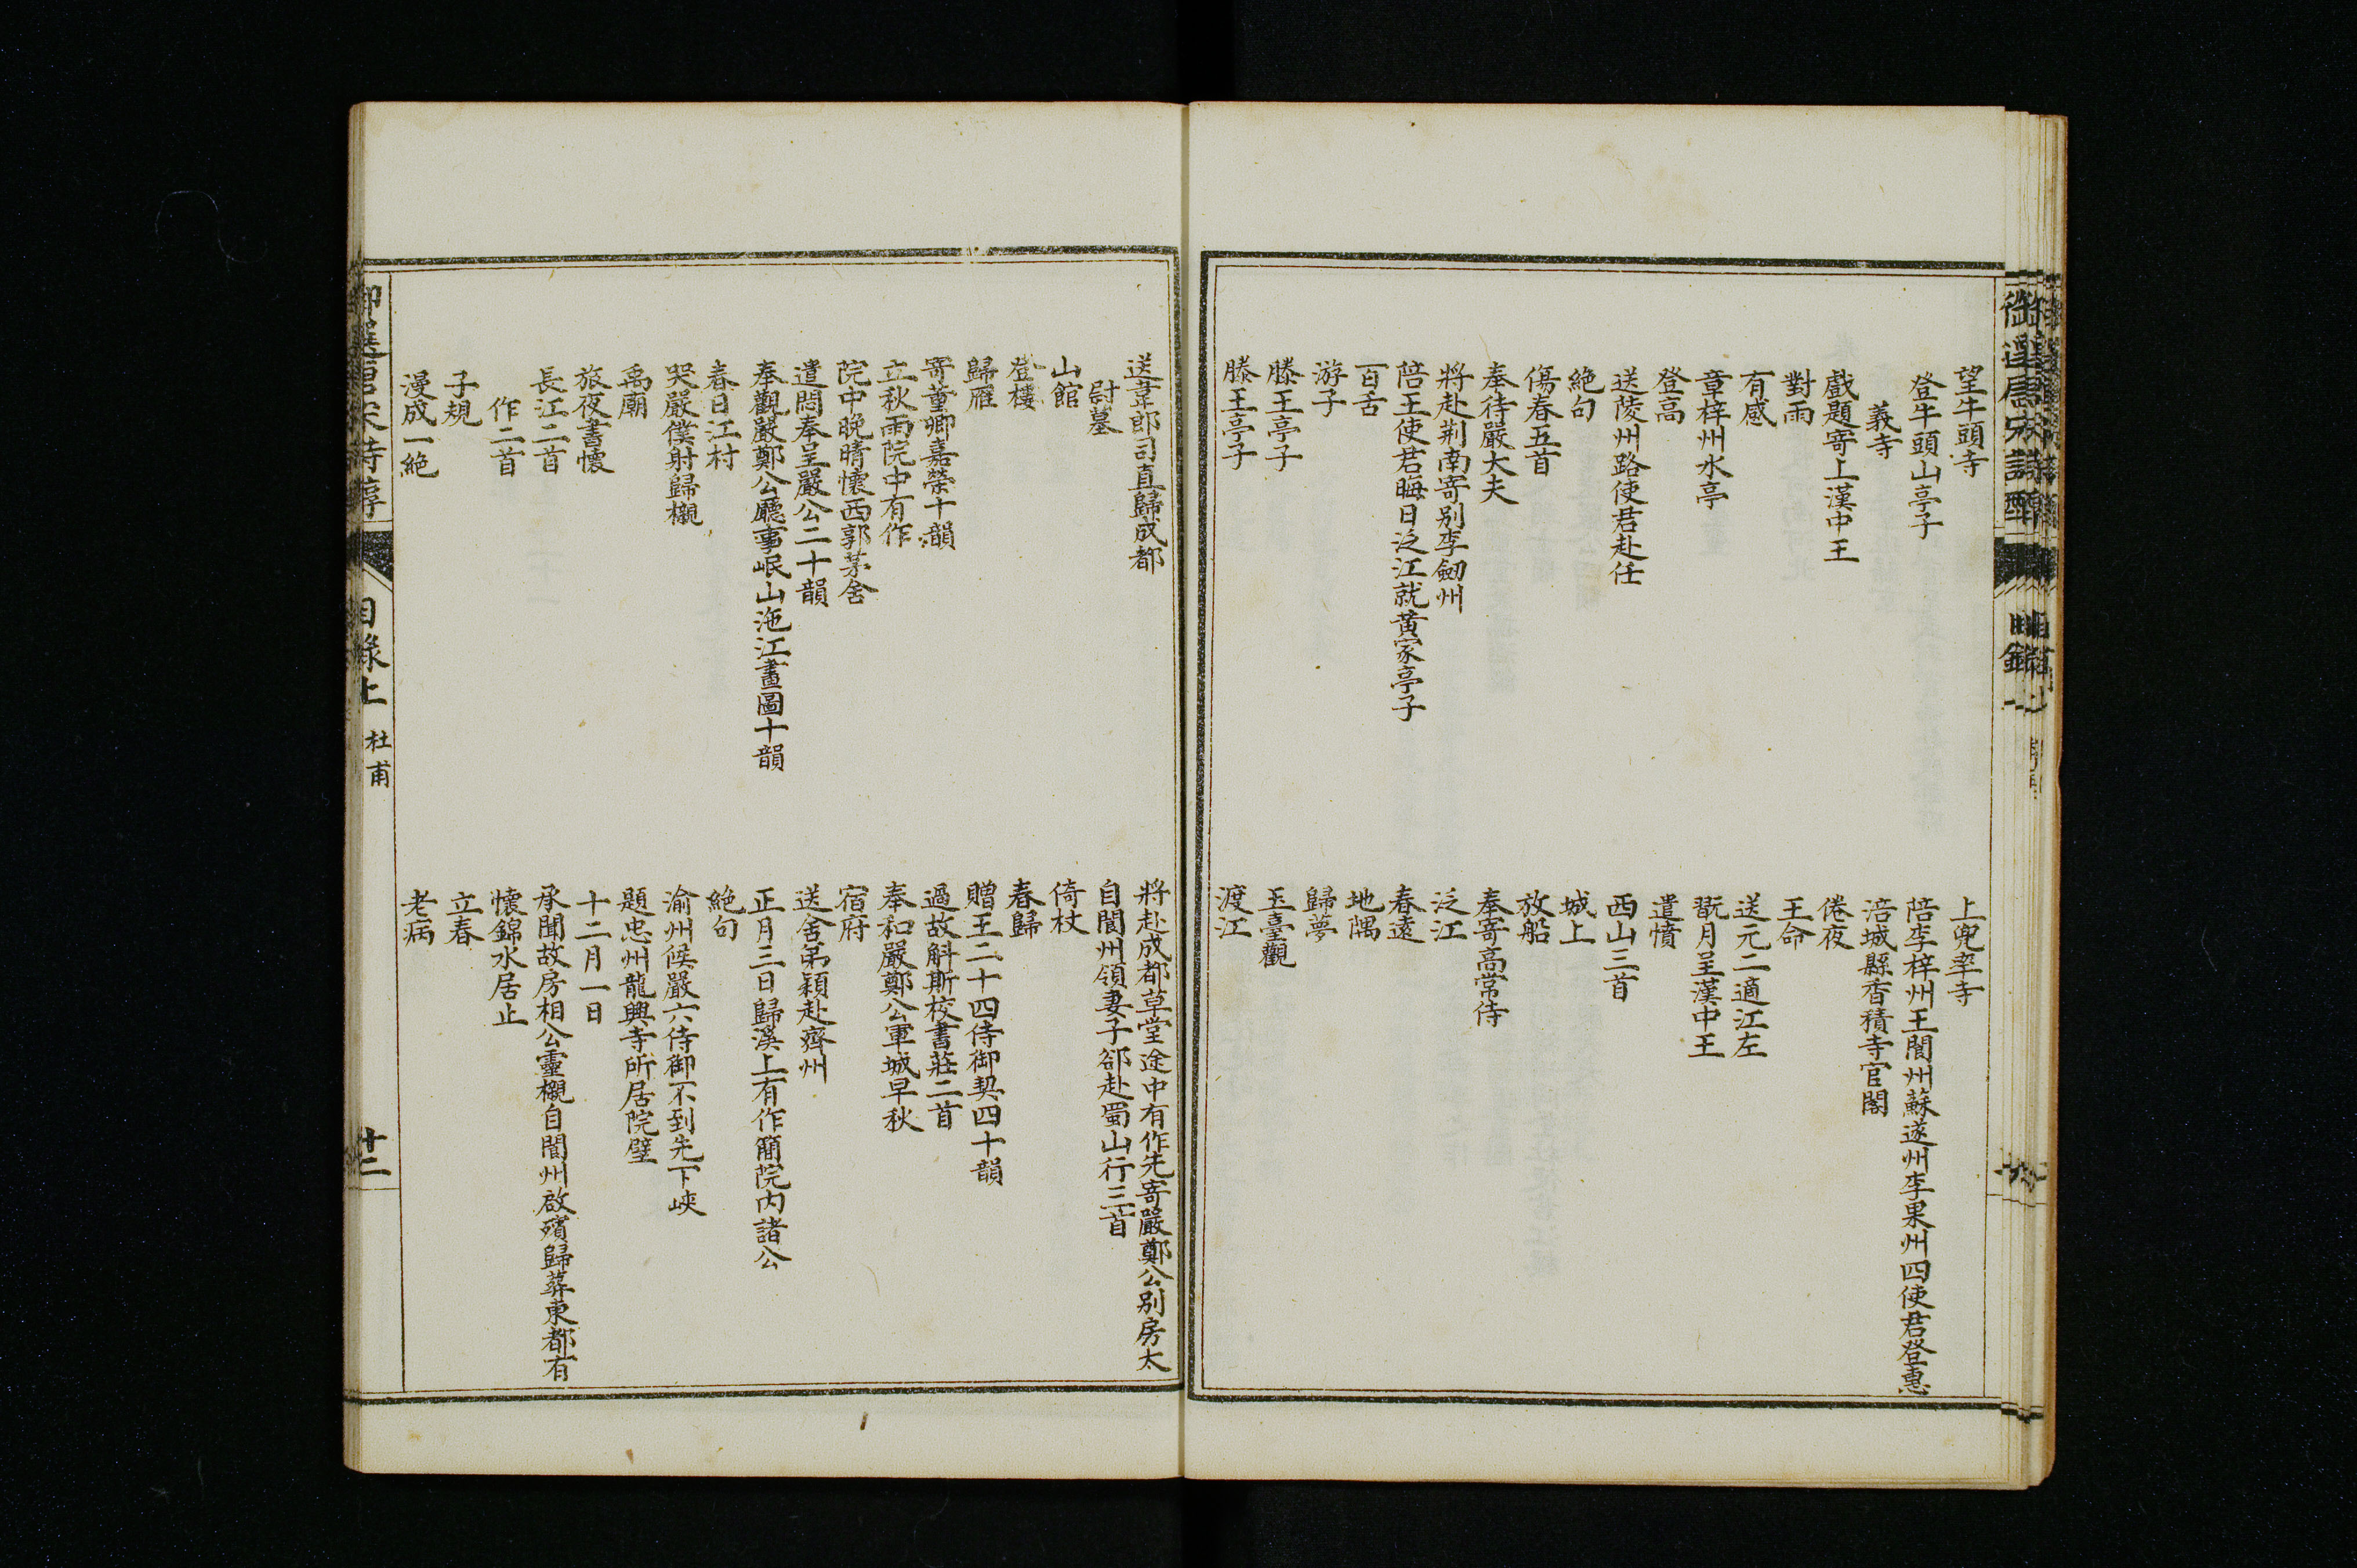 望牛頭寺
上兜率寺
登牛頭山亭子
陪李梓州王閬州蘇遂州李果州四使君登惠
義寺
涪城縣香積寺官閣
戲題寄上漢中王
倦夜
對雨
王命
有感
送元二適江左
章梓州水亭
翫月呈漢中王
登高
遣憤
送陵州路使君赴任
西山三首
絕句
城上
傷春五首
放船
奉待嚴大夫
奉寄高常侍
將赴荆南寄别李劒州
泛江
陪王使君晦日泛江就黄家亭子
春遠
百舌
地隅
游子
歸夢
滕王亭子
玉臺觀
滕王亭子
渡江
送韋郎司直歸成都
將赴成都草堂途中有作先寄嚴鄭公别房太
尉墓
自閬州領妻子郤赴蜀山行三首
山館
倚杖
登樓
春歸
歸雁
贈王二十四侍御契四十韻
寄董卿嘉榮十韻
過故斛斯校書莊二首
立秋雨院中有作
奉和嚴鄭公軍城早秋
院中晚晴懷西郭茅舍
宿府
遣悶奉呈嚴公二十韻
送舍弟穎赴齊州
奉觀嚴鄭公廳事岷山沲江畫圖十韻
正月三日歸溪上有作簡院内諸公
春日江村
絕句
哭嚴僕射歸櫬
渝州候嚴六侍御不到先下峽
禹廟
題忠州龍興寺所居院壁
旅夜書懷
十二月一日
長江二首
承聞故房相公靈櫬自閬州啟殯歸葬東都有
作二首
懷錦水居止
子規
立春
漫成一絕
老病
御選唐宋詩醇
目錄上
杜甫
廿二